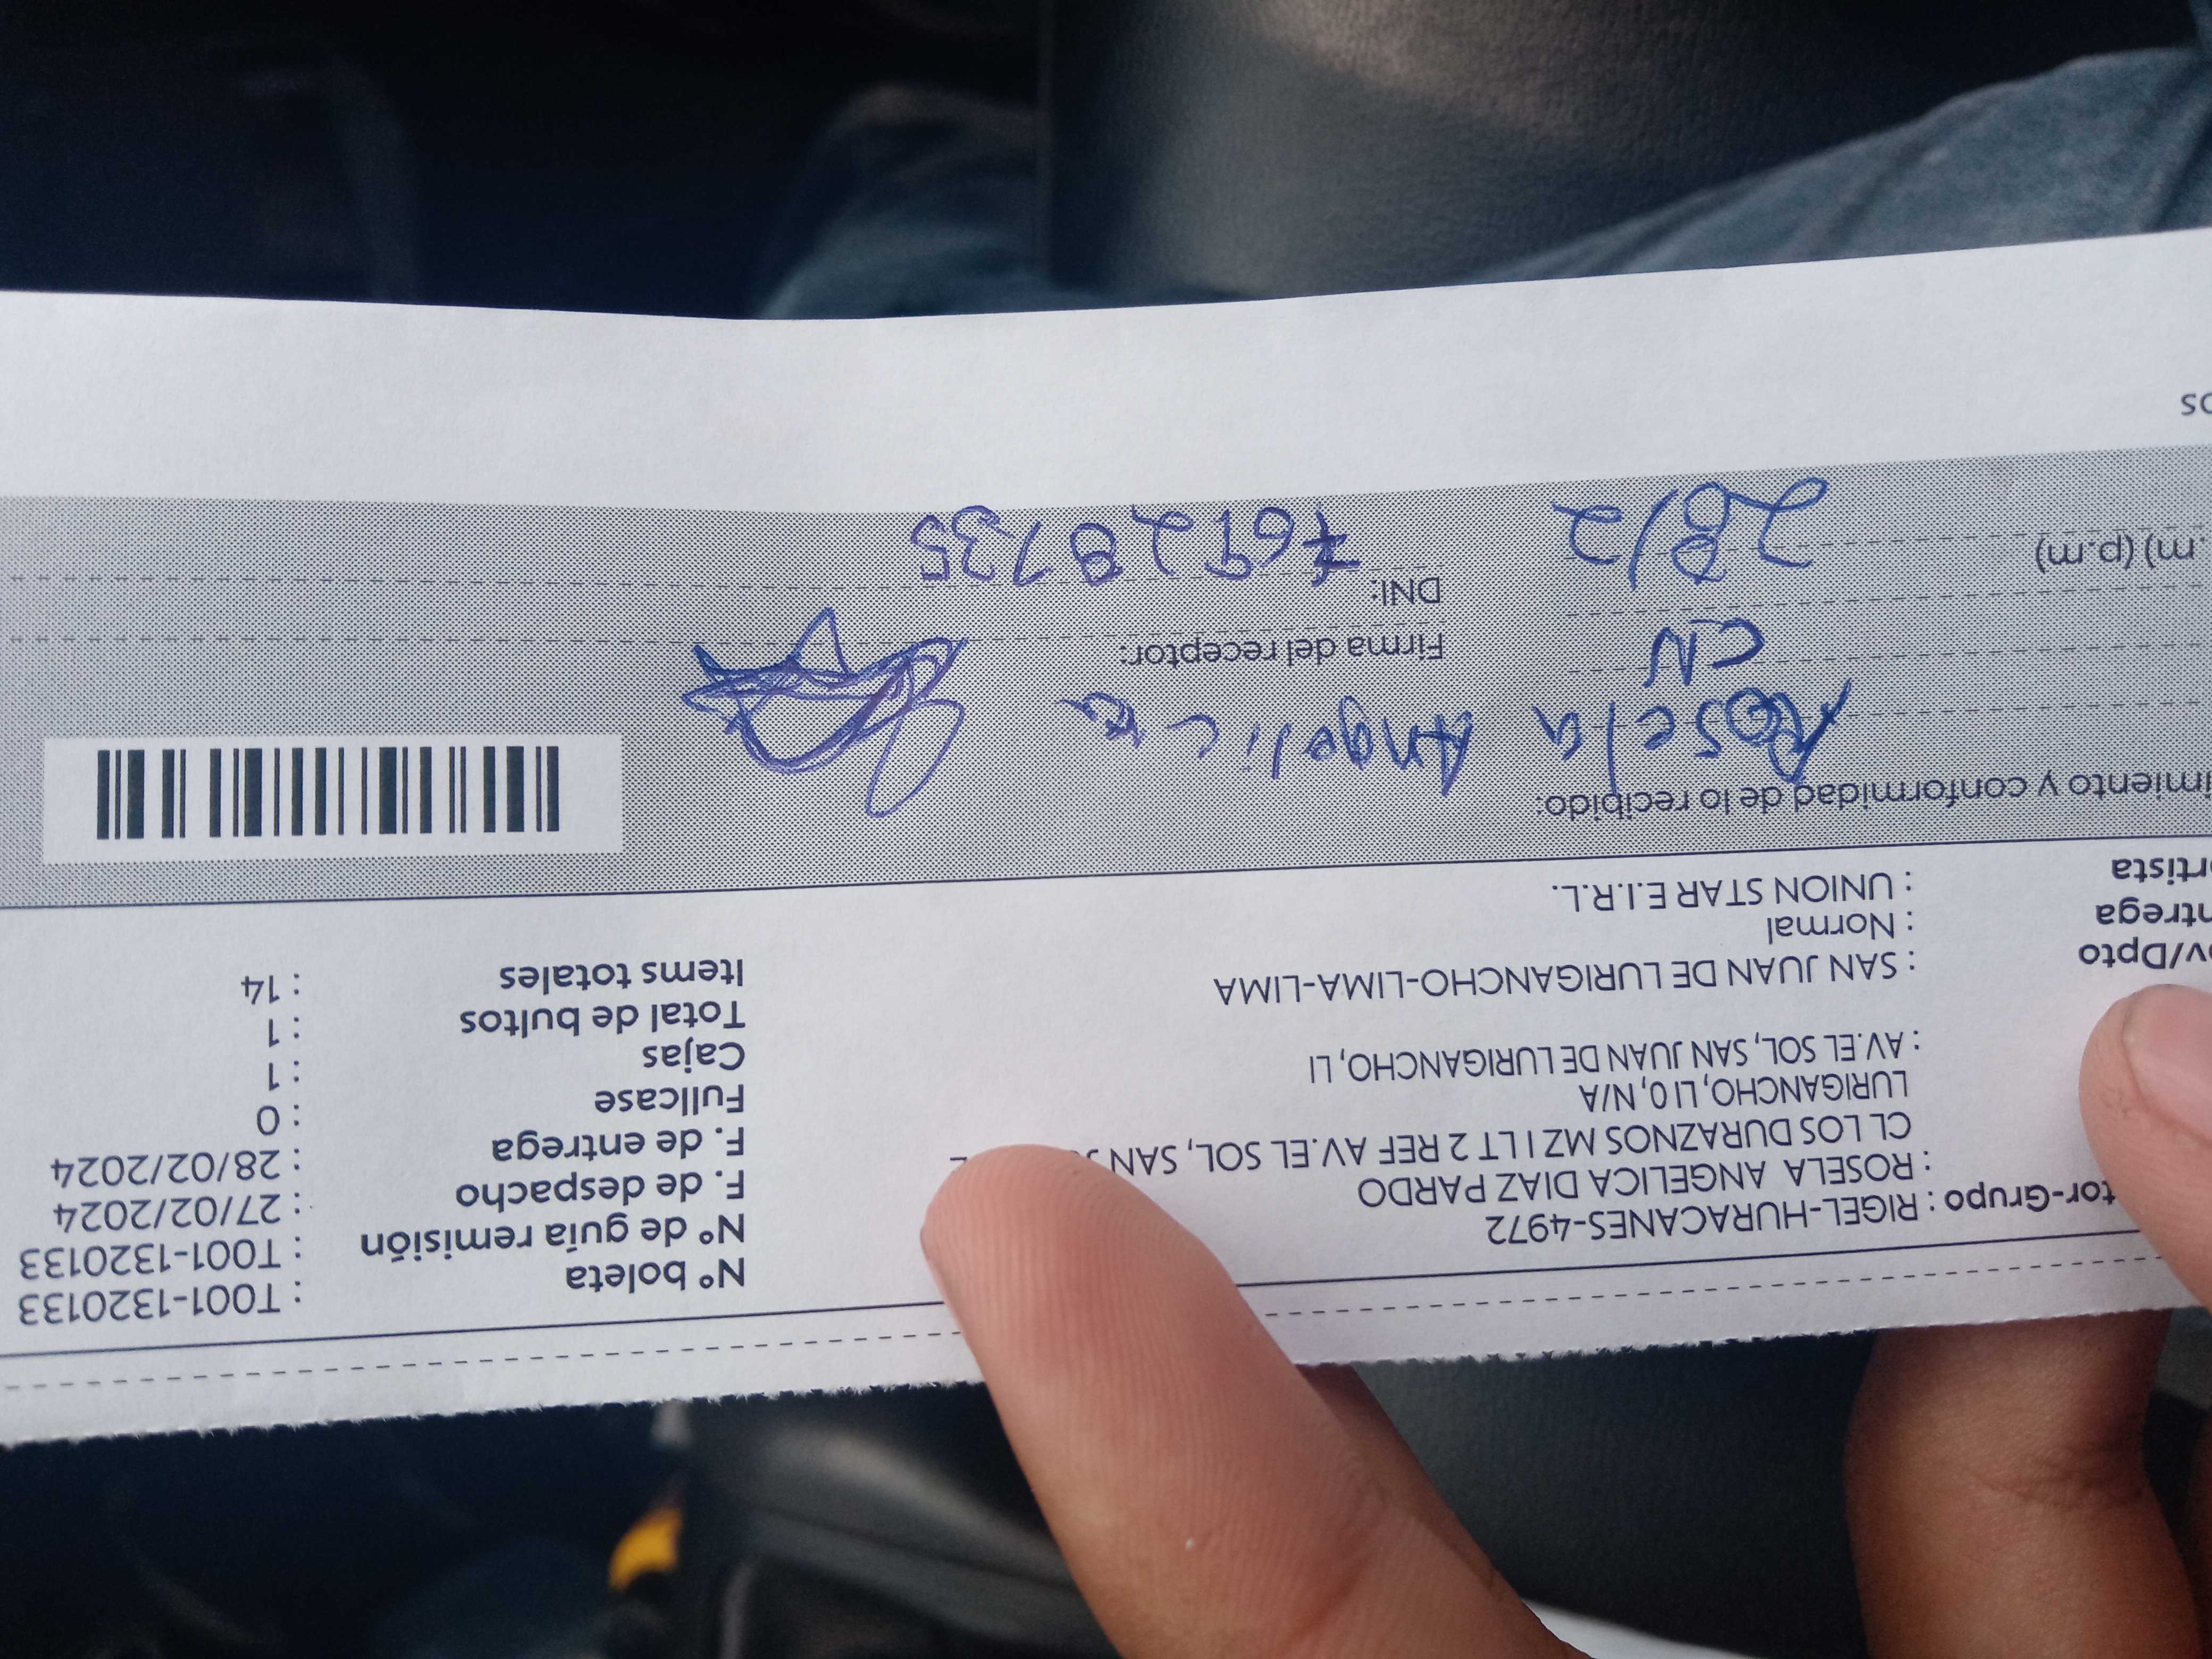 tor-Grupo : RIGEL-HURACANES-4972
: ROSELA ANGELICA DIAZ PARDO
CL LOS DURAZNOS MZ I LT 2 REF AV.EL SOL, SAN
LURIGANCHO, LI 0, N/A
: AV.EL SOL, SAN JUAN DE LURIGANCHO, LI
ov/Dpto : SAN JUAN DE LURIGANCHO-LIMA-LIMA
ntrega : Normal
ortista : UNION STAR E.I.R.L.
N° boleta : T001-1320133
N° de guía remisión : T001-1320133
F. de despacho : 27/02/2024
F. de entrega : 28/02/2024
Fullcase : 0
Cajas : 1
Total de bultos : 1
Items totales : 14
imiento y conformidad de lo recibido:
Rosela Angelica
CN
Firma del receptor:
.m) (p.m) 28/2
DNI: 76928735
os